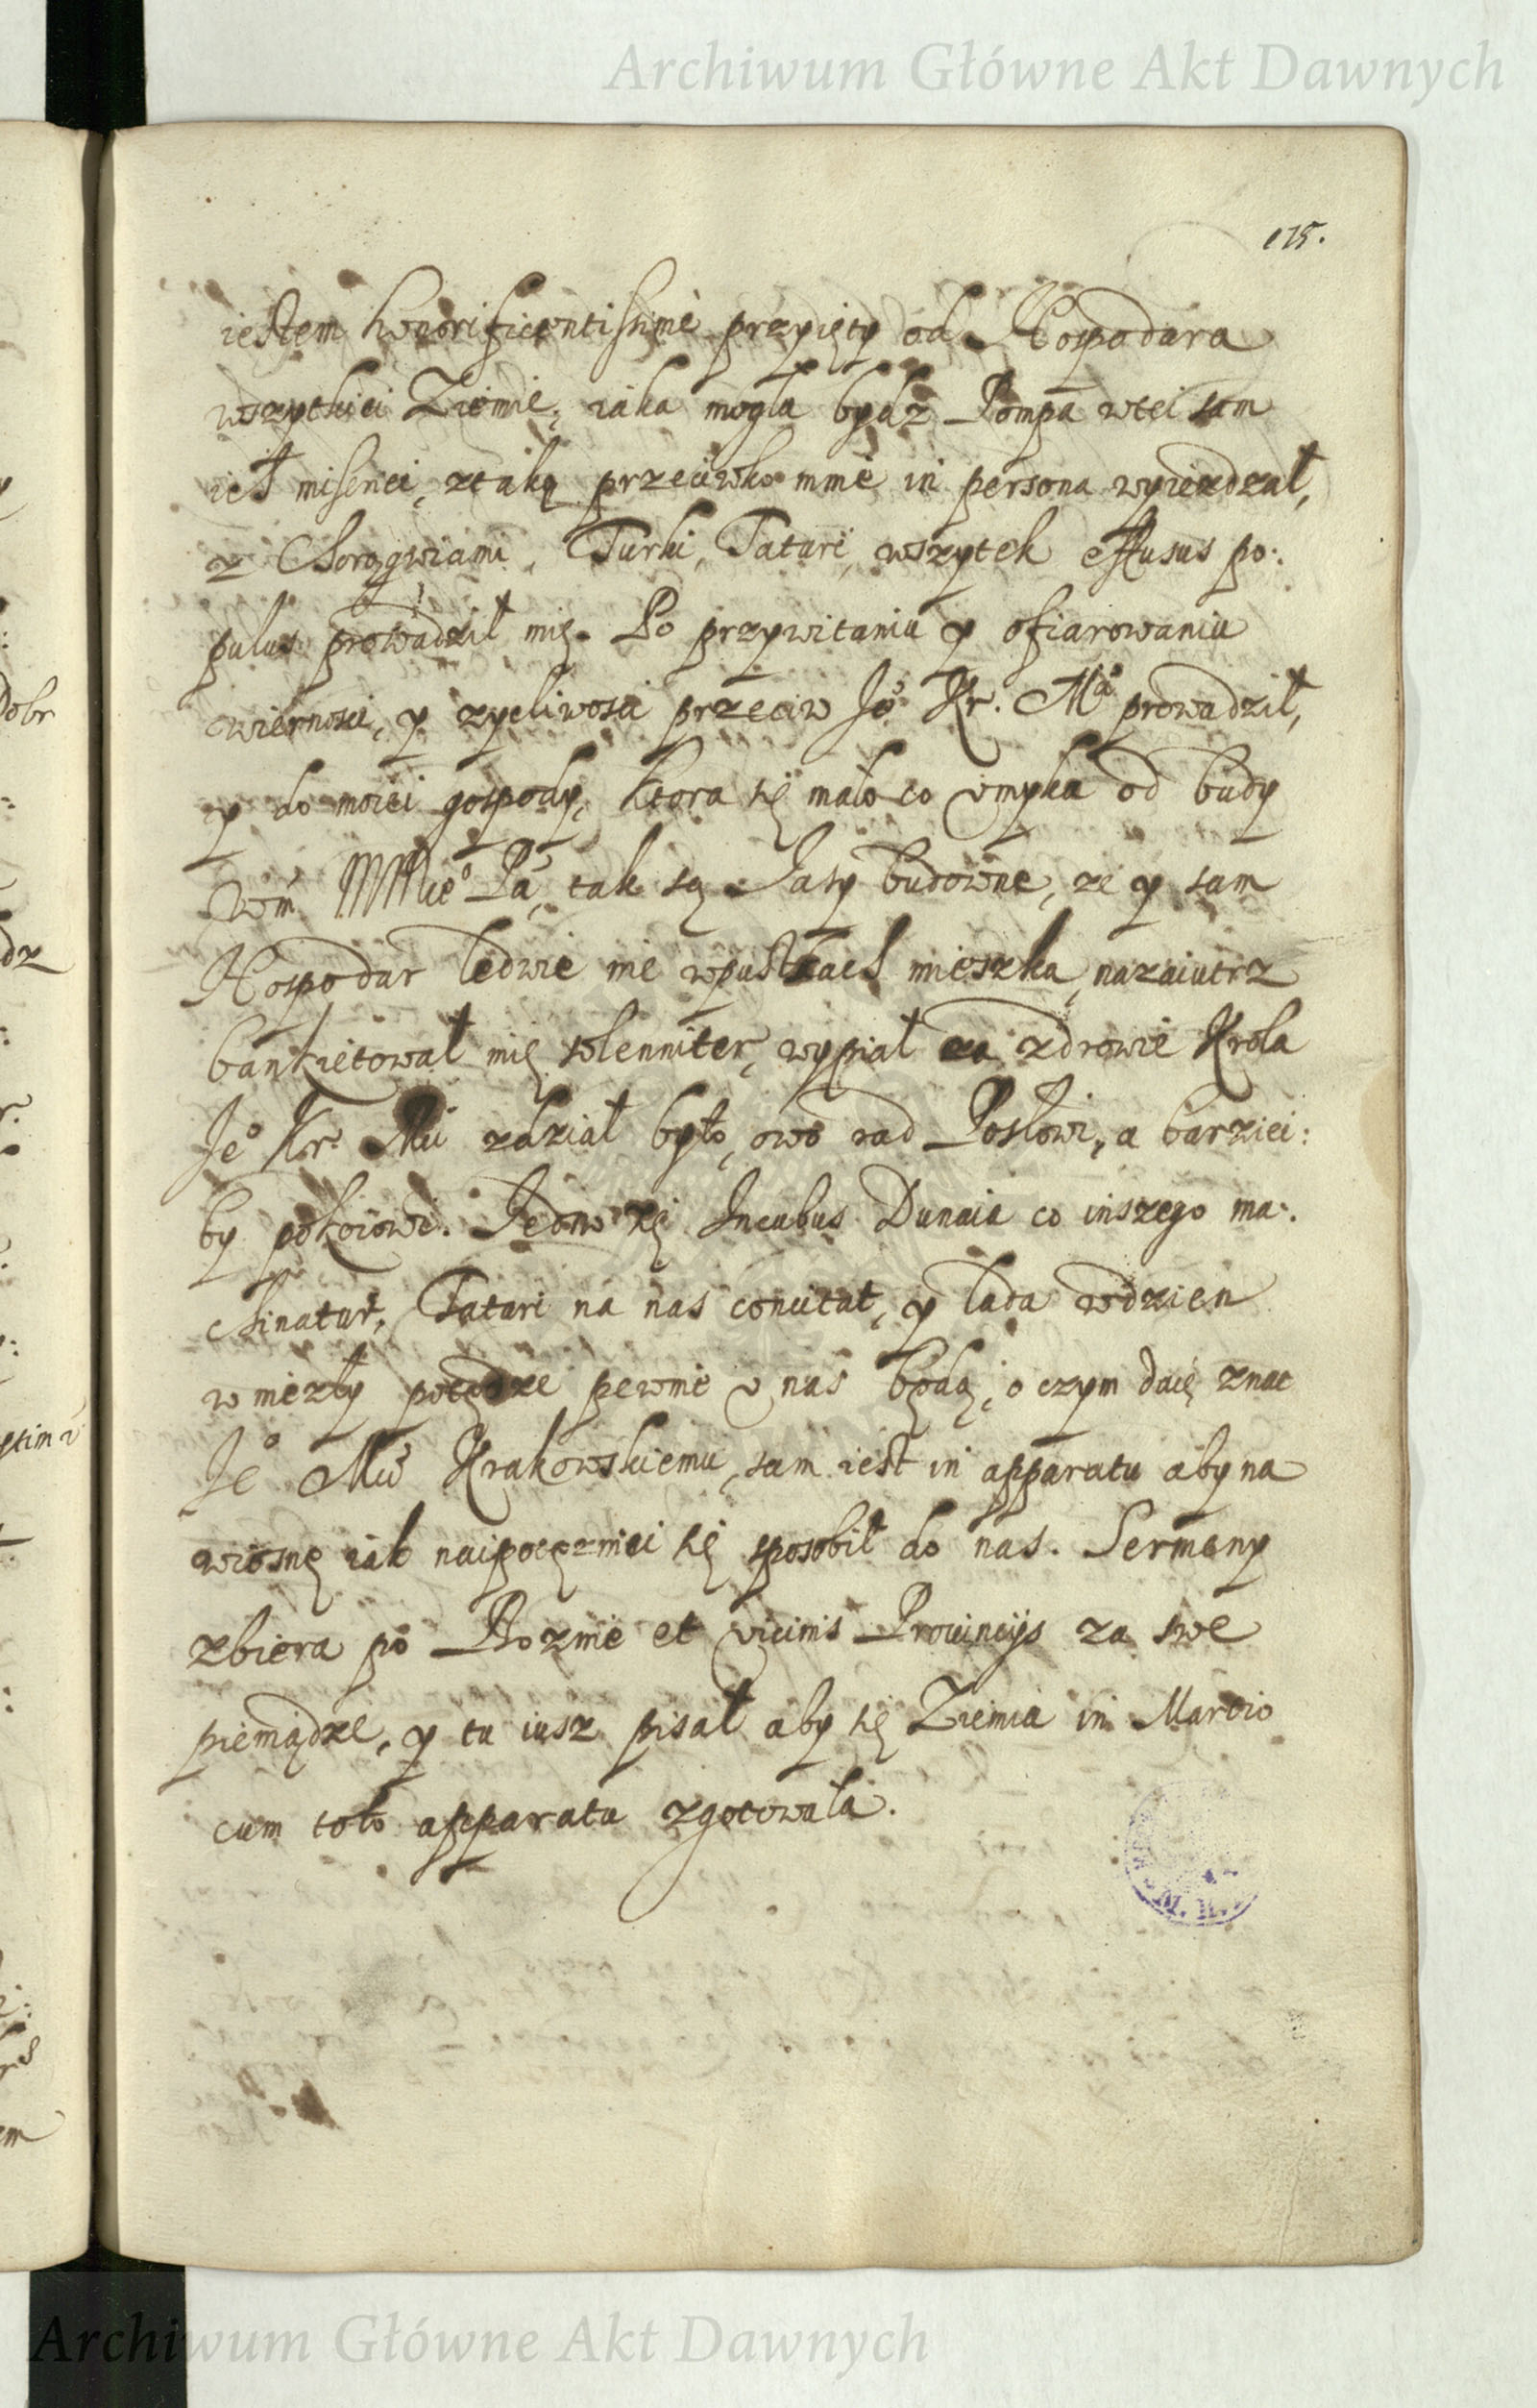 Archiwum Główne Akt Dawnych
175.
iestem honorificentissime przyięty od Hospodara
wszytkiei Ziemie, iaka mogła bydz Pompa wtei sam
ich misernei, ztaką przeciwko mnie in persona wyiezdzał,
z Chorągwiami, Turki, Tatari, wszytek effusus po:
pulus prowadził mię. Po przywitaniu y ofiarowaniu
wiernosci, y zyczliwosci przeciw Jeo Kr. Mci prowadził,
y do moiei gospody, ktora się mało co vmyka od budy
Wm MMcieo Pa, tak są Jasy budowne, ze y sam
Hospodar ledwie nie wpustkach mieszka, nazaiutrz
bankietował mię solenniter, wypiał za zdrowie Krola
Jeo Kr. Mci zdział było, owo rad Posłowi, a barziei:
by pokoiowi. Jedno zęi Incubus Dunaia co inszego ma:
chinatur, Tatari na nas concitat, y lada wdzien
w niezły potędze pewnie v nas będą, o czym daię znac
Jeo Mci Krakowskiemu, sam iest in apparatu aby na
wiosnę iak naipotęzniei się sposobił do nas. Sermeny
zbiera po Boznie et vicinis Provincijs za swe
pieniądze, y tu iusz pisał aby się Ziemia in Martio
cum toto apparatu zgotowała.
Archiwum Główne Akt Dawnych